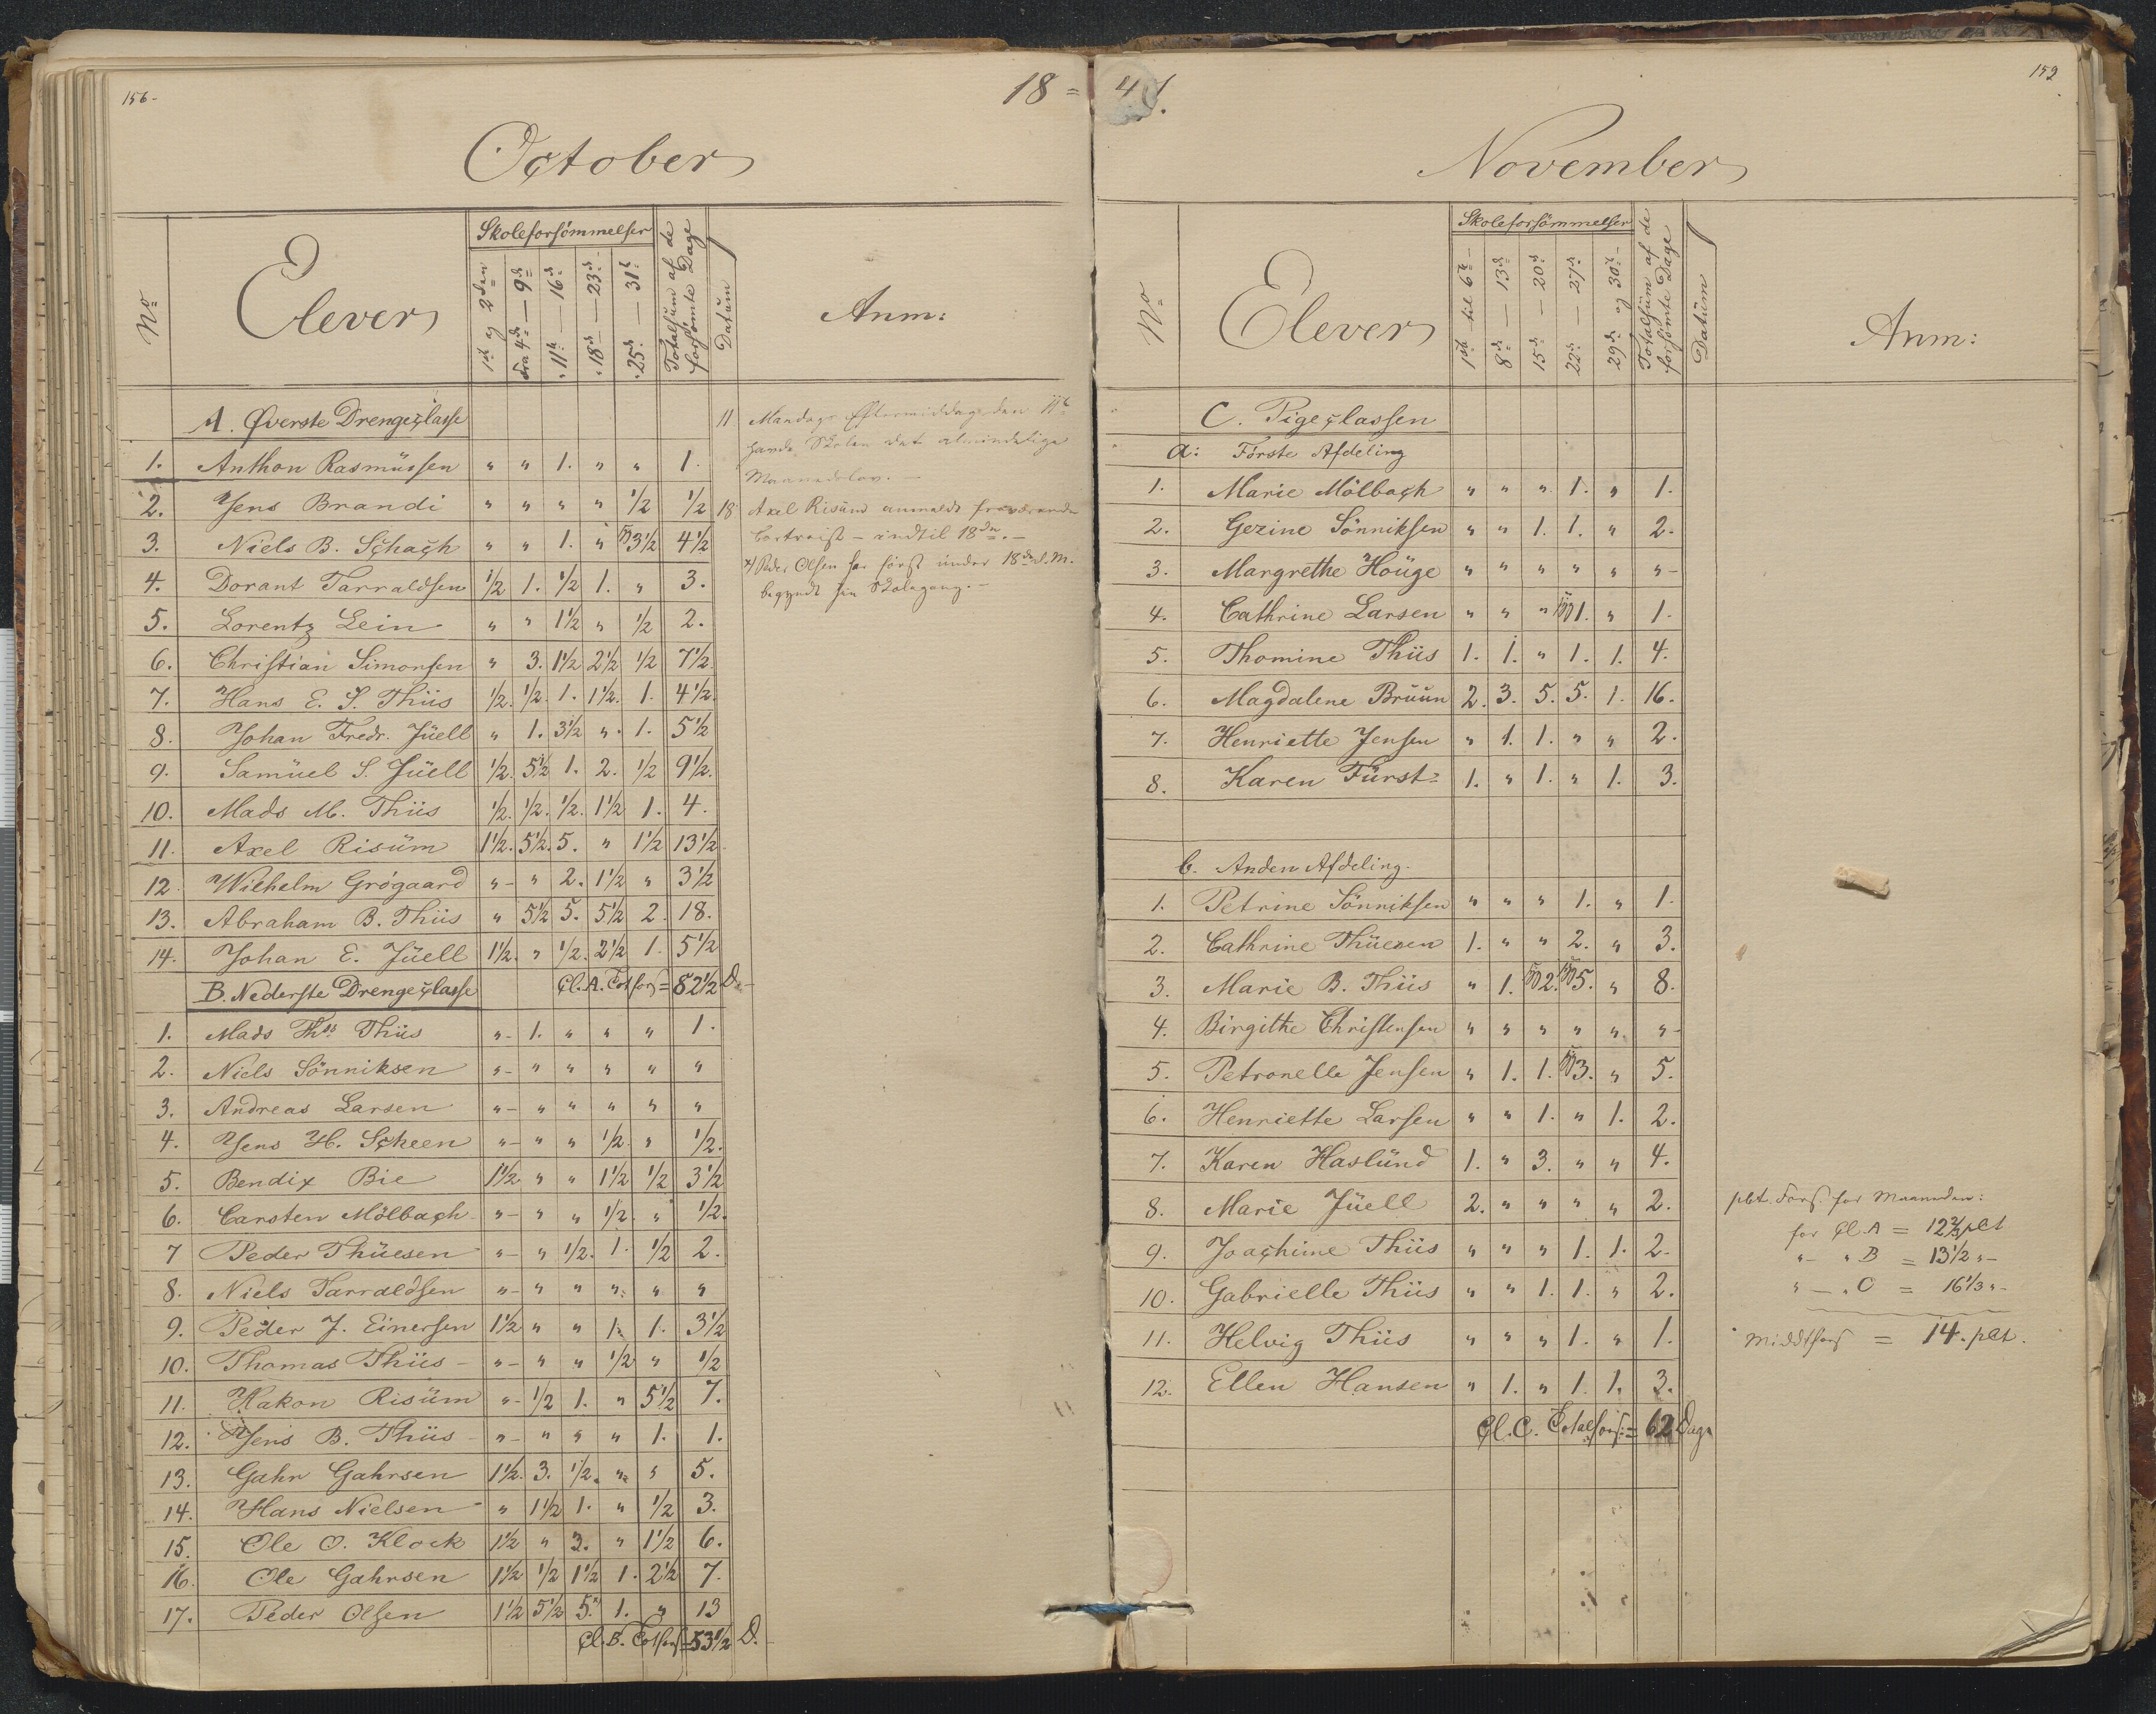 156-
18 = 41.
October
No Elever Skoleforsömmelser Totalsum af de forsömte Dage Datüm Anm:
1ste og 2den fra 4de — 9de " 11te — 16de " 18de — 23de " 25de — 31te
A. Øverste Drengeclasse
1. Anthon Rasmüssen " " 1. " " 1.
2. Jens Brandi " " " " 1/2 1/2
3. Niels B. Schach " " 1. " 3 1/2 4 1/2
4. Dorant Tarraldsen 1/2 1. 1/2 1. " 3.
5. Lorentz Lein " " 1 1/2 " 1/2 2.
6. Christian Simonsen " 3. 1 1/2 2 1/2 1/2 7 1/2.
7. Hans E. S. Thiis 1/2. 1/2. 1. 1 1/2. 1. 4 1/2.
8. Johan Fredr. Jüell " 1. 3 1/2 " 1. 5 1/2
9. Samüel S. Jüell 1/2. 5 1/2 1. 2. 1/2 9 1/2.
10. Mads M. Thiis 1/2. 1/2. 1/2. 1 1/2 1. 4.
11. Axel Risüm 1 1/2. 5 1/2. 5. " 1 1/2 13 1/2
12. Wilhelm Grögaard "- " 2. 1 1/2 " 3 1/2
13. Abraham B. Thiis " 5 1/2 5. 5 1/2 2. 18.
14. Johan E. Jüell 1 1/2. " 1/2. 2 1/2 1. 5 1/2
B. Nederste Drengeclasse Cl. A. Totfors = 82 1/2 D.
1. Mads Ths Thiis "- 1. " " " 1.
2. Niels Sönniksen "- " " " " "
3. Andreas Larsen "- " " " " "
4. Jens H. Scheen "- " " 1/2. " 1/2.
5. Bendix Bie 1 1/2 " " 1 1/2 1/2 3 1/2
6. Carsten Mölbach "- " " 1/2. " 1/2.
7 Peder Thüesen "- " 1/2. 1. 1/2 2.
8. Niels Tarraldsen "- " " " " "
9. Peder J. Einersen 1 1/2 " " 1. 1. 3 1/2
10. Thomas Thiis "- " " 1/2 " 1/2
11. Hakon Risüm "- 1/2 1. " 5 1/2 7.
12. Jens B. Thiis "- " " " 1. 1.
13. Gahr Gahrsen 1 1/2. 3. 1/2. " " 5.
14. Hans Nielsen " 1 1/2 1. " 1/2 3.
15. Ole O. Klock 1 1/2 " 3. " 1 1/2 6.
16. Ole Gahrsen 1 1/2 1/2 1 1/2 1. 2 1/2 7.
17. Peder Olsen 1 1/2 5 1/2 5.x) 1. " 13
Cl. B. Totfors = 53 1/2 D.
11 Mandags Eftermiddag den 11te
havde Skolen det almindelige
Maanedslov. —
18 Axel Risüm anmeldt fraværende
bortreist – indtil 18de. —
x) Peder Olsen har först ünder 18de d. M.
begyndt sin Skolegang. —
159
November
No Elever Skoleforsömmelser Totalsüm af de forsömte Dage Datüm Anm:
1ste til 6te 8de — 13de 15de — 20de 22de — 27de 29de og 30te
C. Pigeclassen
a: Förste Afdeling
1. Marie Mölbach " " " 1. " 1.
2. Gezine Sönniksen " " 1. 1. " 2.
3. Margrethe Höüge " " " " " "-
4. Cathrine Larsen " " " 1. " 1.
5. Thomine Thiis 1. 1. " 1. 1. 4.
6. Magdalene Brüün 2. 3. 5. 5. 1. 16.
7. Henriette Jensen " 1. 1. " " 2.
8. Karen Fürst 1. " 1. " 1. 3.
b. Anden Afdeling.
1. Petrine Sönniksen " " " 1. " 1.
2. Cathrine Thüesen 1. " " 2. " 3.
3. Marie B. Thiis " 1. 2. 5. " 8.
4. Birgithe Christensen " " " " " "-
5. Petronelle Jensen " 1. 1. 3. " 5.
6. Henriette Larsen " " 1. " 1. 2.
7. Karen Haslünd 1. " 3. " " 4.
8. Marie Jüell 2. " " " " 2.
9. Joachime Thiis " " " 1. 1. 2.
10. Gabrielle Thiis " " 1. 1. " 2.
11. Helvig Thiis " " " 1. " 1.
12. Ellen Hansen " 1. " 1. 1. 3.
Cl. C. Totalfors: = 62 Dage
pCt. Fors. for Maaneden:
for Cl. A = 12 2/3 pCt
"- " B = 13 1/2 "-
" - " C = 16 1/3 "-
Middelfors = 14. pCt.